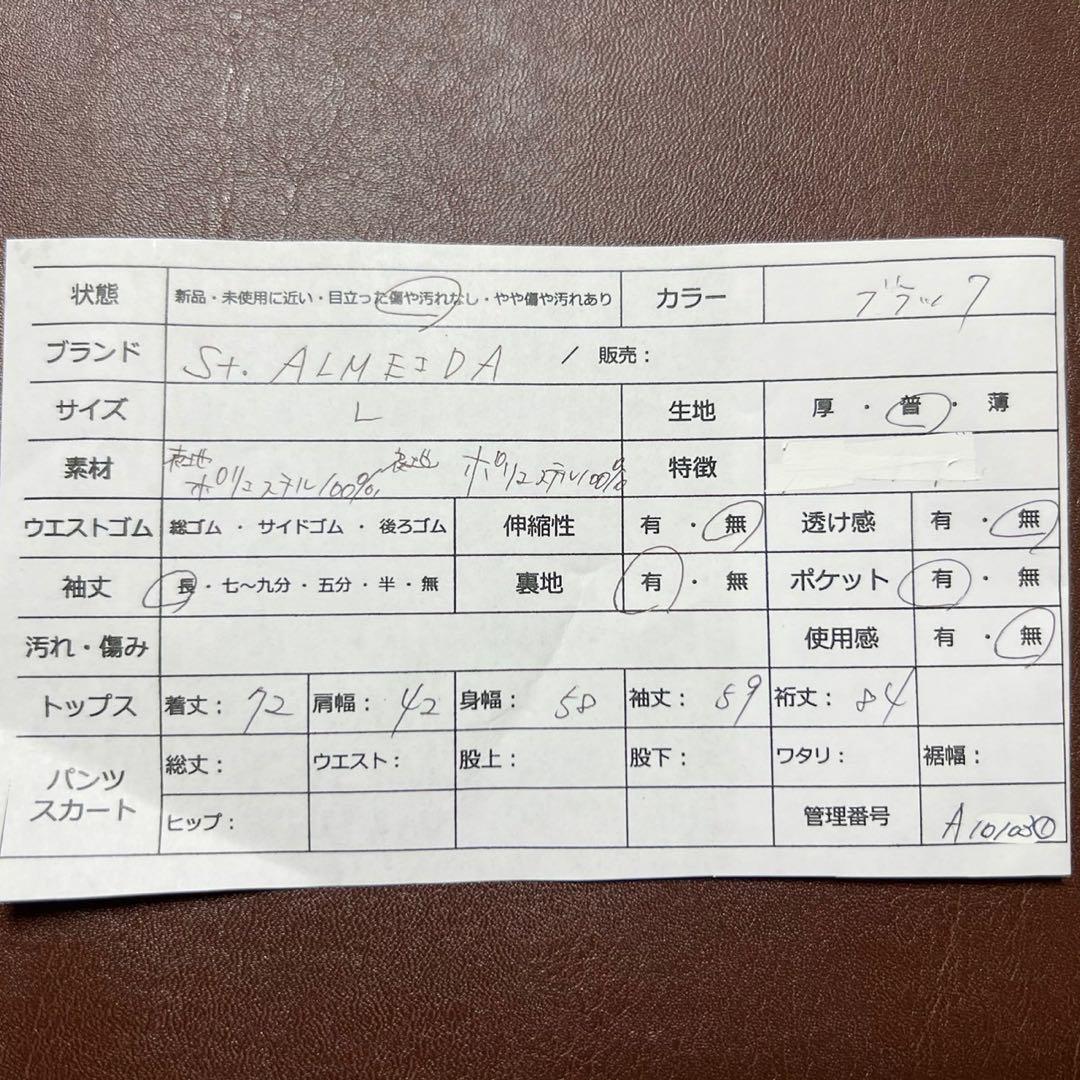 状態 新品・未使用に近い・目立った傷や汚れなし・やや傷や汚れあり カラー ブラック
ブランド St. ALMEIDA / 販売：
サイズ L 生地 厚・普・薄
素材 表地 ポリエステル100% ポリエステル100% 特徴
ウエストゴム 総ゴム・サイドゴム・後ろゴム 伸縮性 有・無 透け感 有・無
袖丈 長・七〜九分・五分・半・無 裏地 有・無 ポケット 有・無
汚れ・傷み 使用感 有・無
トップス 着丈：72 肩幅：42 身幅：58 袖丈：59 裄丈：84
パンツ スカート 総丈： ウエスト： 股上： 股下： ワタリ： 裾幅：
ヒップ： 管理番号